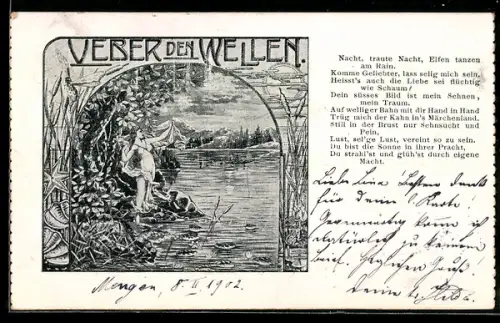 UEBER DEN WELLEN.
Nacht, traute Nacht, Elfen tanzen
am Rain.
Komme Geliebter, lass selig mich sein,
Heisst's auch die Liebe sei flüchtig
wie Schaum!
Dein süsses Bild ist mein Sehnen,
mein Traum.
Auf welliger Bahn mit dir Hand in Hand
Trüg mich der Kahn in's Märchenland.
Still in der Brust nur Sehnsucht und
Pein,
Lust, sel'ge Lust, vereint so zu sein.
Du bist die Sonne in ihrer Pracht,
Du strahl'st und glüh'st durch eigene
Macht.
Liebe Lina! Besten Dank
für deine Karte!
komm ich
natürlich zu keinem
Brief. Herzlichen Gruss!
deine
Mengen, 8. II. 1902.